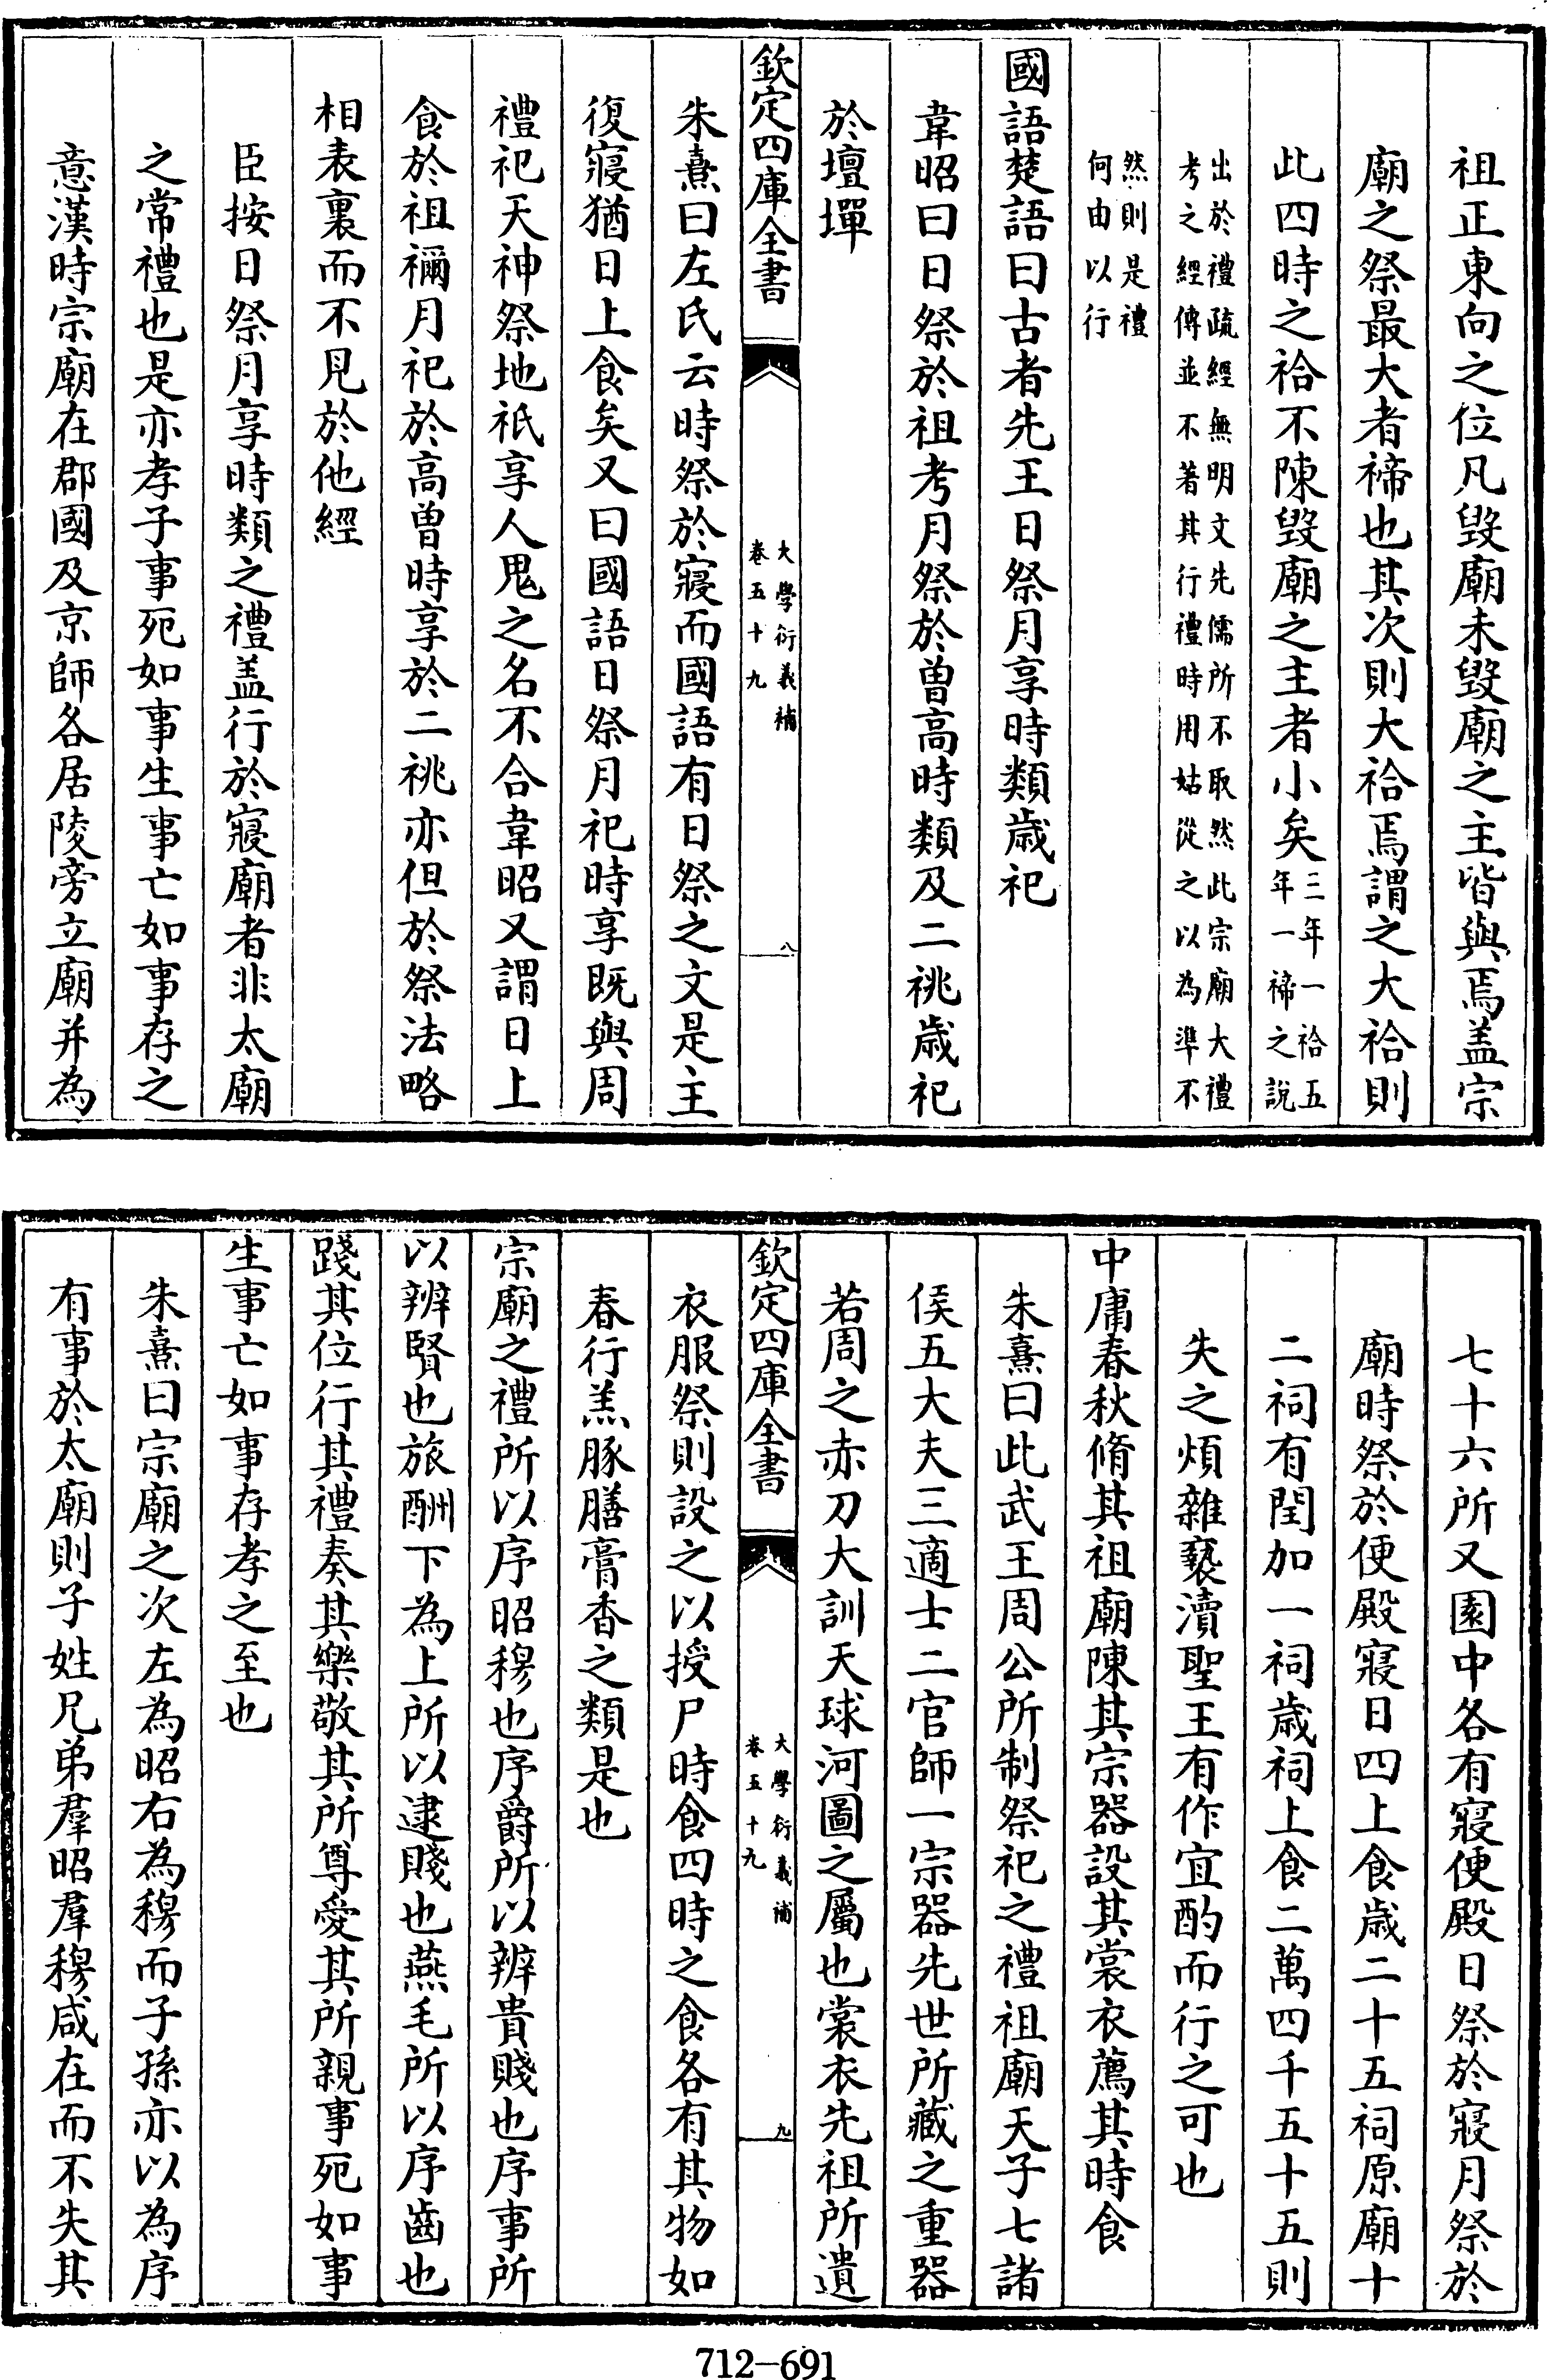 祖正東向之位凡毀廟未毀廟之主皆與焉盖宗
廟之祭最大者禘也其次則大祫焉謂之大祫則
此四時之祫不陳毀廟之主者小矣三年一祫五年一禘之說
出於禮疏經無明文先儒所不取然此宗廟大禮
考之經傳並不著其行禮時用姑從之以為準不
然則是禮
何由以行
國語楚語曰古者先王日祭月享時類歲祀
韋昭曰日祭於祖考月祭於曽高時類及二祧歲祀
於壇墠
欽定四庫全書
大學衍義補
卷五十九
八
朱熹曰左氏云時祭於寢而國語有日祭之文是主
復寢猶日上食矣又曰國語日祭月祀時享既與周
禮祀天神祭地祇享人鬼之名不合韋昭又謂日上
食於祖禰月祀於高曽時享於二祧亦但於祭法略
相表裏而不見於他經
臣按日祭月享時類之禮盖行於寢廟者非太廟
之常禮也是亦孝子事死如事生事亡如事存之
意漢時宗廟在郡國及京師各居陵旁立廟并為
七十六所又園中各有寢便殿日祭於寢月祭於
廟時祭於便殿寢日四上食歲二十五祠原廟十
二祠有閏加一祠歲祠上食二萬四千五十五則
失之煩雜褻瀆聖王有作宜酌而行之可也
中庸春秋脩其祖廟陳其宗器設其裳衣薦其時食
朱熹曰此武王周公所制祭祀之禮祖廟天子七諸
侯五大夫三適士二官師一宗器先世所藏之重器
若周之赤刀大訓天球河圖之屬也裳衣先祖所遺
欽定四庫全書
大學衍義補
卷五十九
九
衣服祭則設之以授尸時食四時之食各有其物如
春行羔豚膳膏香之類是也
宗廟之禮所以序昭穆也序爵所以辨貴賤也序事所
以辨賢也旅酬下為上所以逮賤也燕毛所以序齒也
踐其位行其禮奏其樂敬其所尊愛其所親事死如事
生事亡如事存孝之至也
朱熹曰宗廟之次左為昭右為穆而子孫亦以為序
有事於太廟則子姓兄弟羣昭羣穆咸在而不失其
712-691